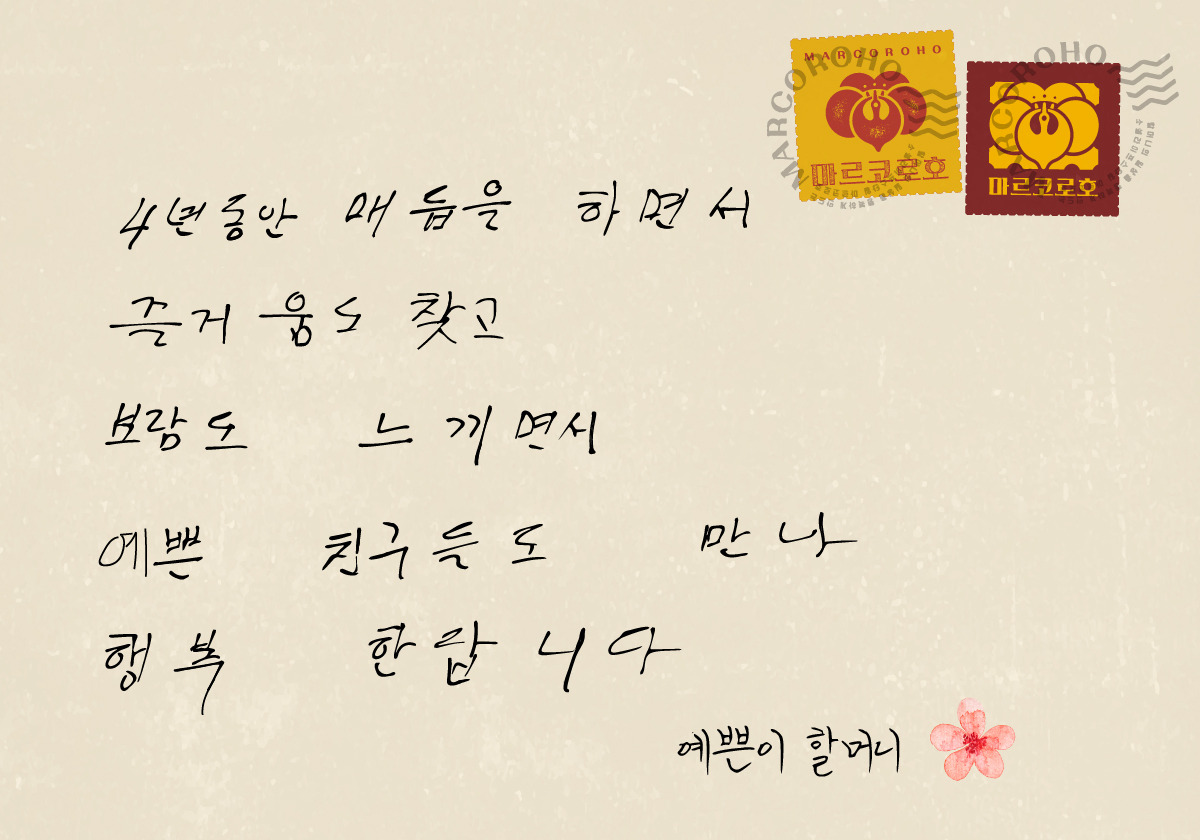 MARCOROHO
MARCOROHO
마르코로호
MARCOROHO
마르코로호
4년동안 매듭을 하면서
즐거움도 찾고
보람도 느끼면서
예쁜 친구들도 만나
행복 한답니다
예쁜이 할머니